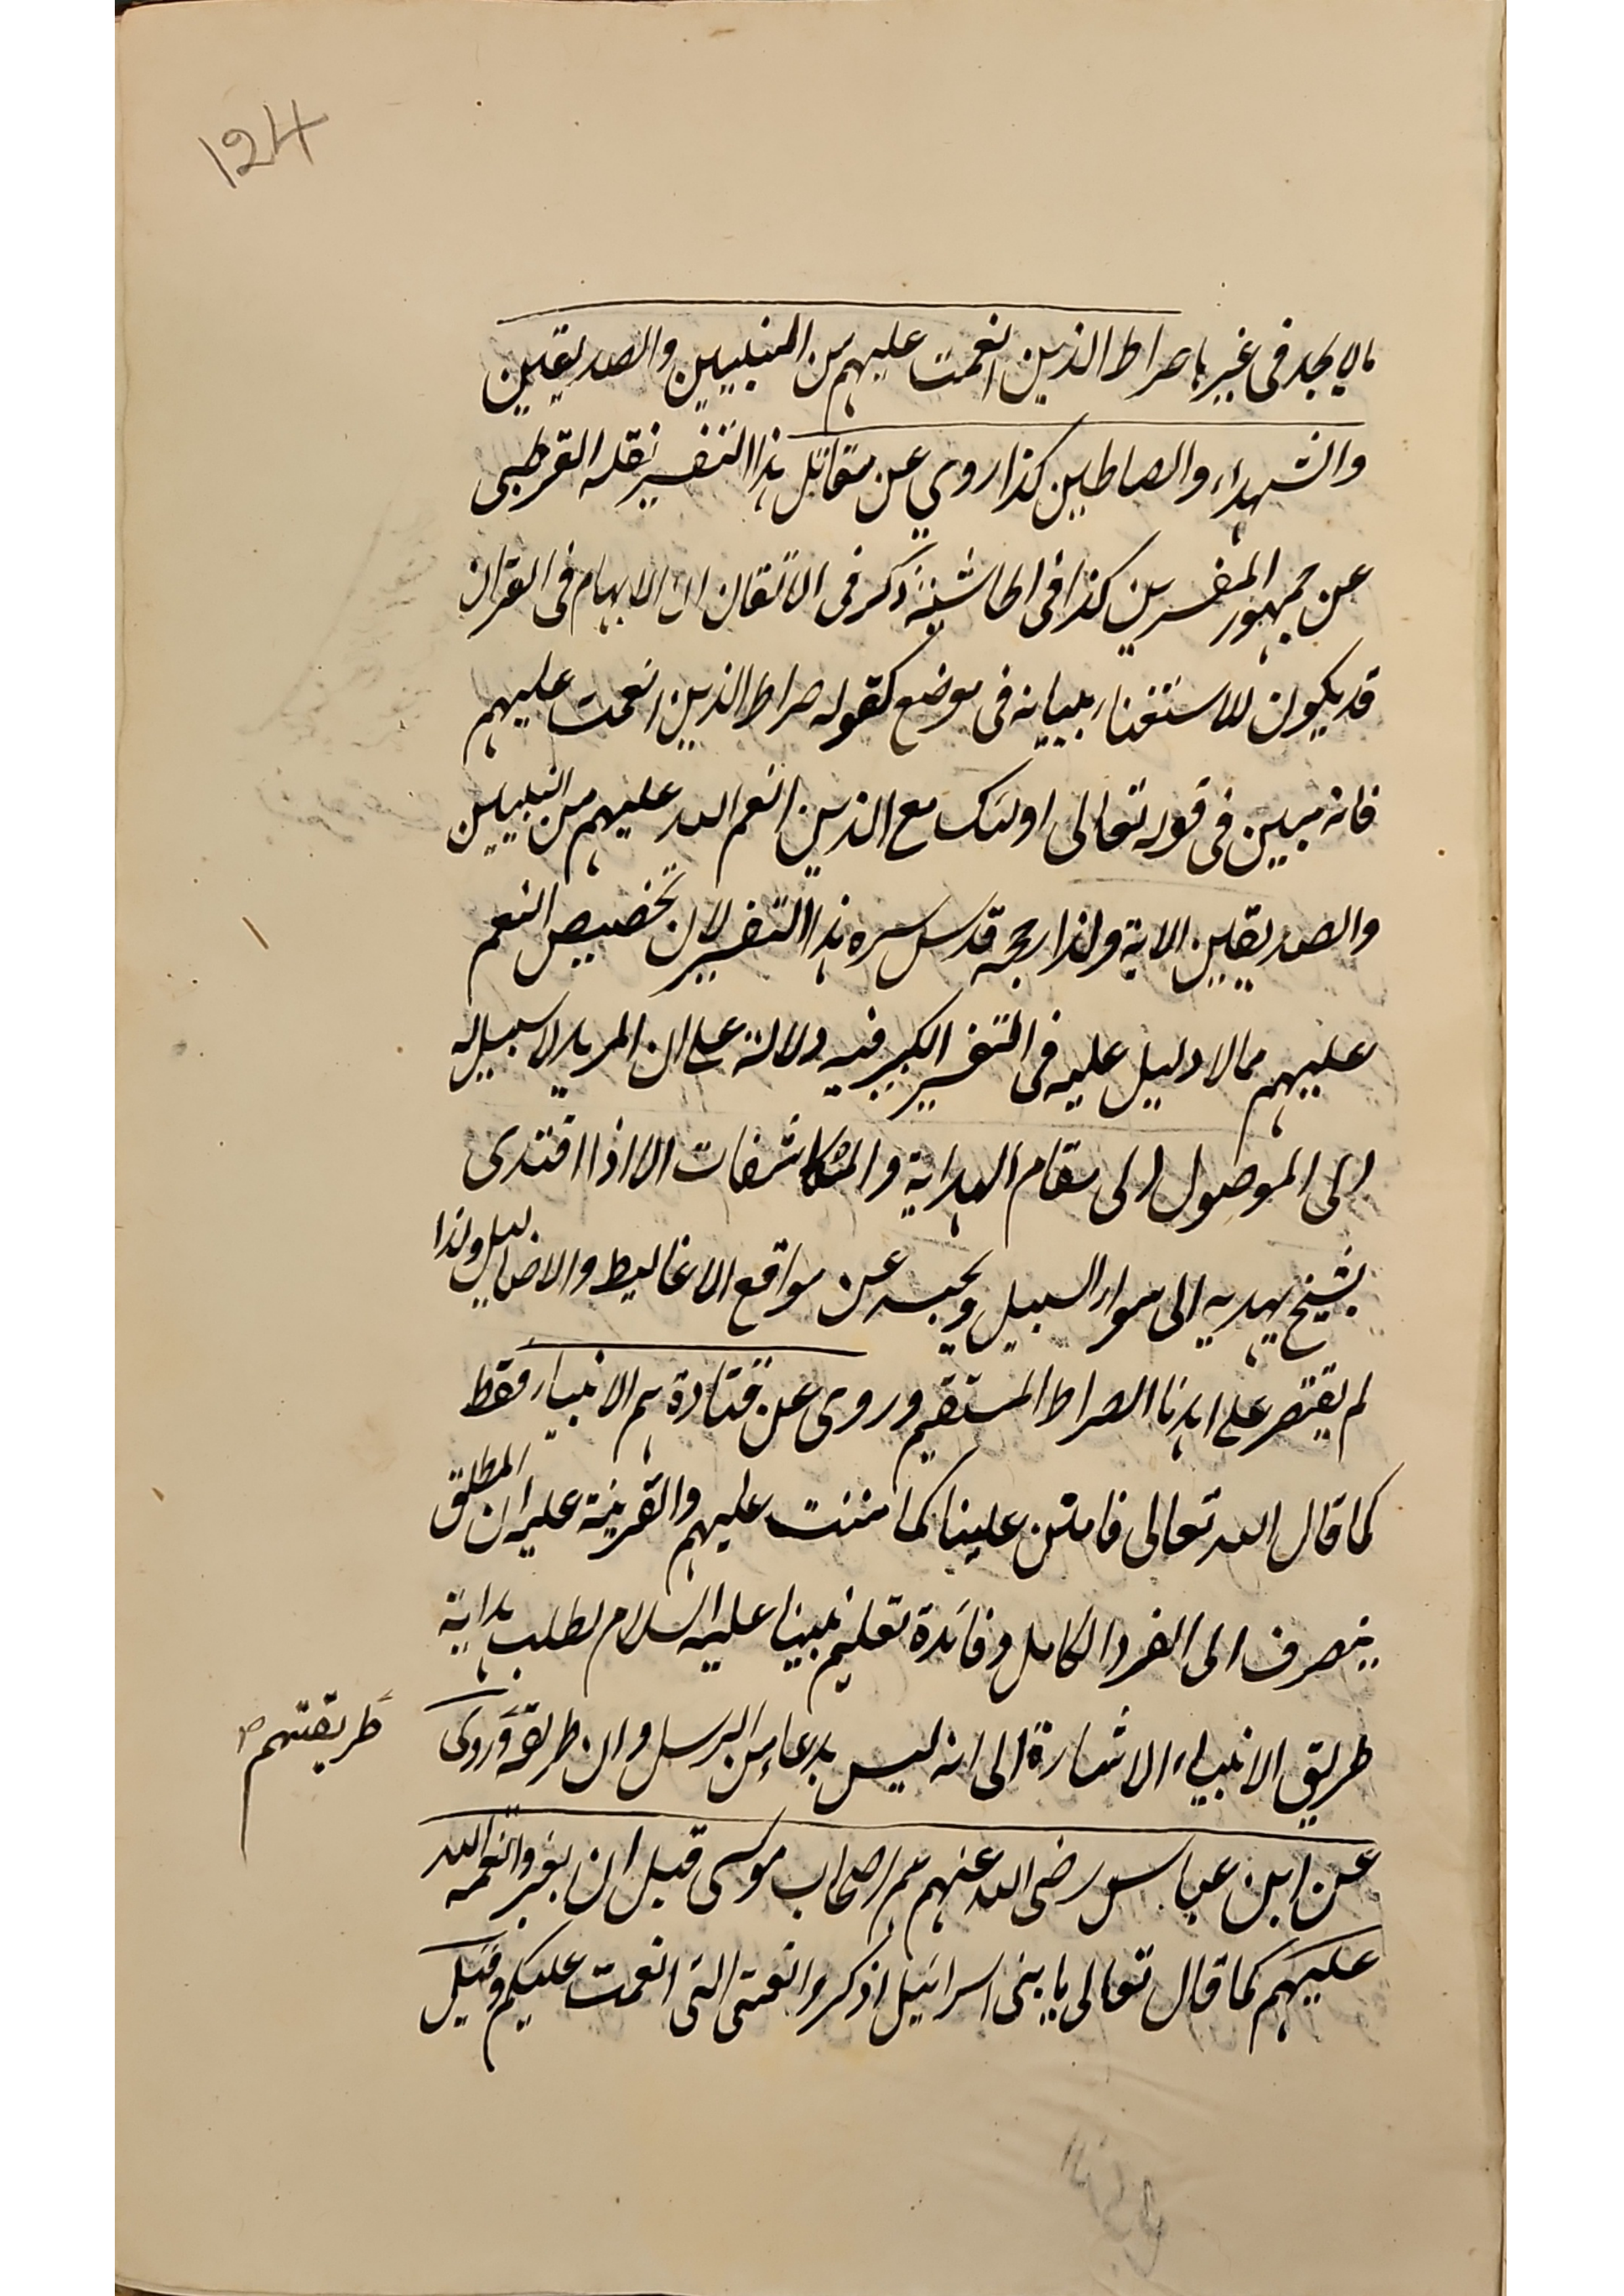 124
ما لا يجد في غيرها صراط الذين انعمت عليهم من النبيين والصديقين
والشهداء والصالحين كذا روي عن مقاتل هذا التفسير نقله القرطبي
عن جمهور المفسرين كذا في الحاشية ذكر في الاتقان ان الابهام في القران
قد يكون للاستغناء ببيانه في موضع كقوله صراط الذين انعمت عليهم
فانه مبين في قوله تعالى اولئك مع الذين انعم الله عليهم من النبيين
والصديقين الاية ولذا رجحه قدس سره هذا التفسير لان تخصيص النعم
عليهم مما لا دليل عليه في التفسير الكبير فيه دلالة على ان المريد لا سبيل له
الى الوصول الى مقام الهداية والمكاشفات الا اذا اقتدى
بشيخ يهديه الى سواء السبيل ويجنبه عن مواقع الاغاليط والاضاليل ولذا
لم يقتصر على اهدنا الصراط المستقيم وروى عن قتادة هم الانبياء فقط
كما قال الله تعالى فامنن علينا كما مننت عليهم والقرينة عليه ان المطلق
ينصرف الى الفرد الكامل وفائدة تعليم نبينا عليه السلام لطلب هداية
طريق الانبياء الاشارة الى انه ليس بدعا من الرسل وان طريقه وروى
طريقتهم
عن ابن عباس رضى الله عنهم هم اصحاب موسى قبل ان يغيروا نعمة الله
عليهم كما قال تعالى يا بنى اسرائيل اذكروا نعمتى التى انعمت عليكم وقيل